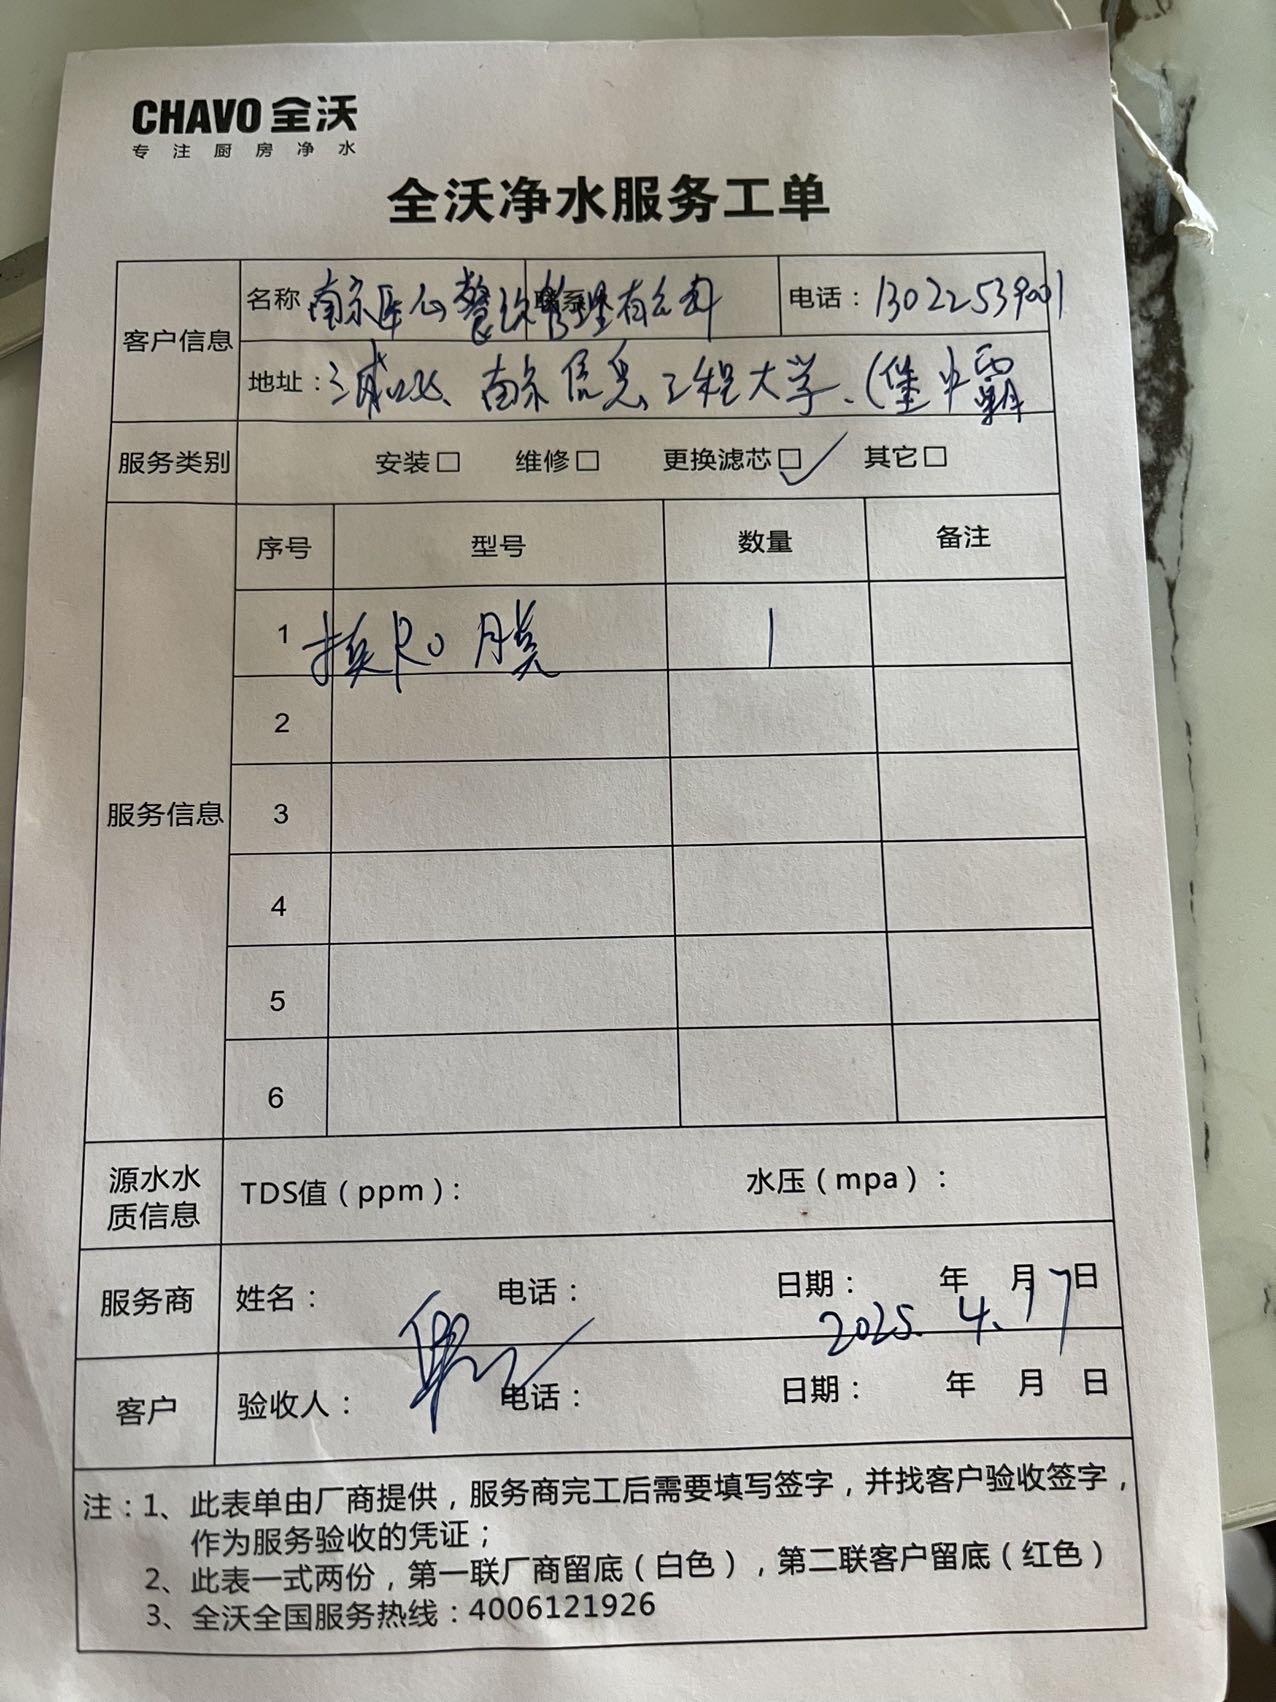 CHAVO 全沃
专注厨房净水
全沃净水服务工单
客户信息
名称 南京匠心餐饮管理有公司 联系 电话：13022539001
地址： 南京信息工程大学、(堡中霸
服务类别 安装□ 维修□ 更换滤芯□✓ 其它□
服务信息
序号 型号 数量 备注
1 换RO膜 1
2
3
4
5
6
源水水质信息 TDS值（ppm）： 水压（mpa）：
服务商 姓名： 电话： 日期： 年 月 日
2025. 4. 17
客户 验收人： 电话： 日期： 年 月 日
注：1、此表单由厂商提供，服务商完工后需要填写签字，并找客户验收签字，
作为服务验收的凭证；
2、此表一式两份，第一联厂商留底（白色），第二联客户留底（红色）
3、全沃全国服务热线：4006121926